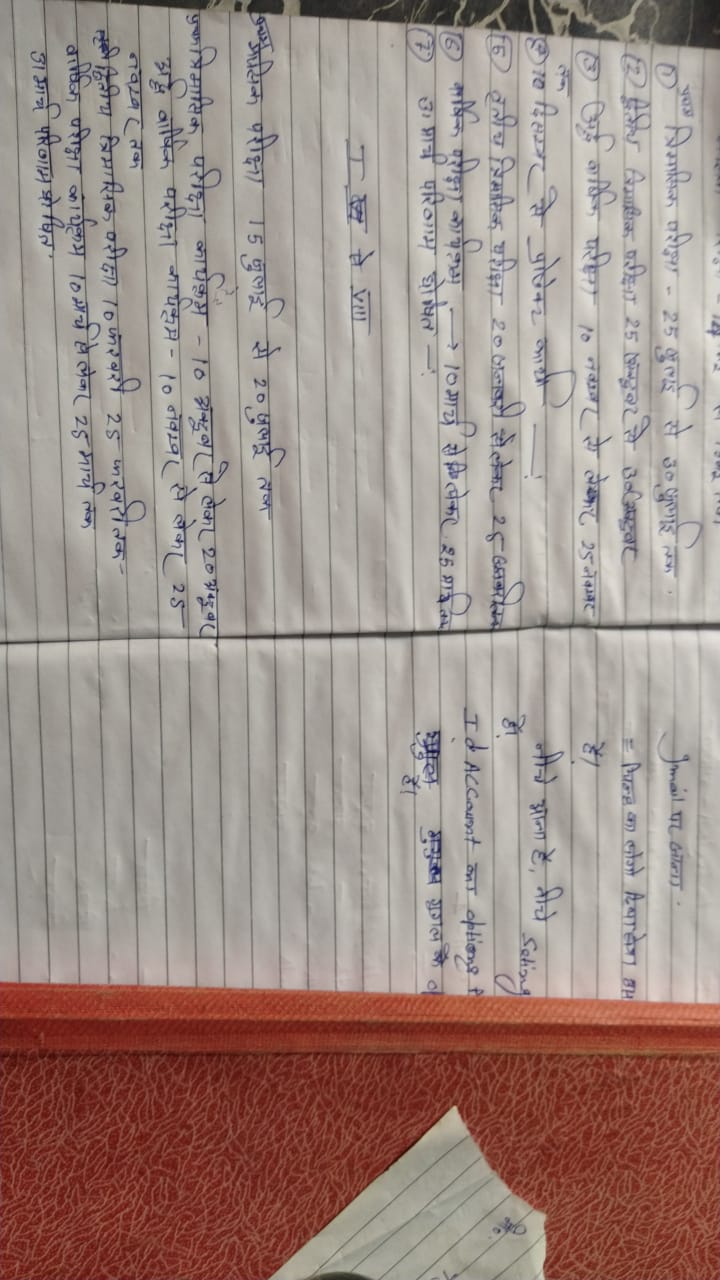 ① प्रथम त्रिमासिक परीक्षा - 25 जुलाई से 30 जुलाई तक.
② द्वितीय त्रिमासिक परीक्षा 25 अक्टुबर से 30 अक्टुबर
③ अर्द्ध वार्षिक परीक्षा 10 नवम्बर से लेकर 25 नवम्बर
तक
④ 10 दिसम्बर से प्रोजेक्ट कार्य —!
⑤ तृतीय त्रिमासिक परीक्षा 20 जनवरी से लेकर 25 जनवरी तक
⑥ वार्षिक परीक्षा कार्यक्रम → 10 मार्च से लेकर 25 मार्च तक
⑦ 30 मार्च परिणाम घोषित —!
I से VIII
परीक्षा 15 जुलाई से 20 जुलाई तक
त्रिमासिक परीक्षा कार्यक्रम - 10 अक्टुबर से लेकर 20 अक्टुबर
अर्द्ध वार्षिक परीक्षा कार्यक्रम - 10 नवम्बर से लेकर 25
नवम्बर तक
त्रिमासिक परीक्षा 10 फरवरी 25 फरवरी तक -
वार्षिक परीक्षा कार्यक्रम 10 मार्च से लेकर 25 मार्च तक
30 मार्च परिणाम घोषित.
Jmail पर जाना.
= का लोगो दिखा देगा
है।
नीचे आना है, नीचे Seting
है।
Id Account का options
गुगल के
है।